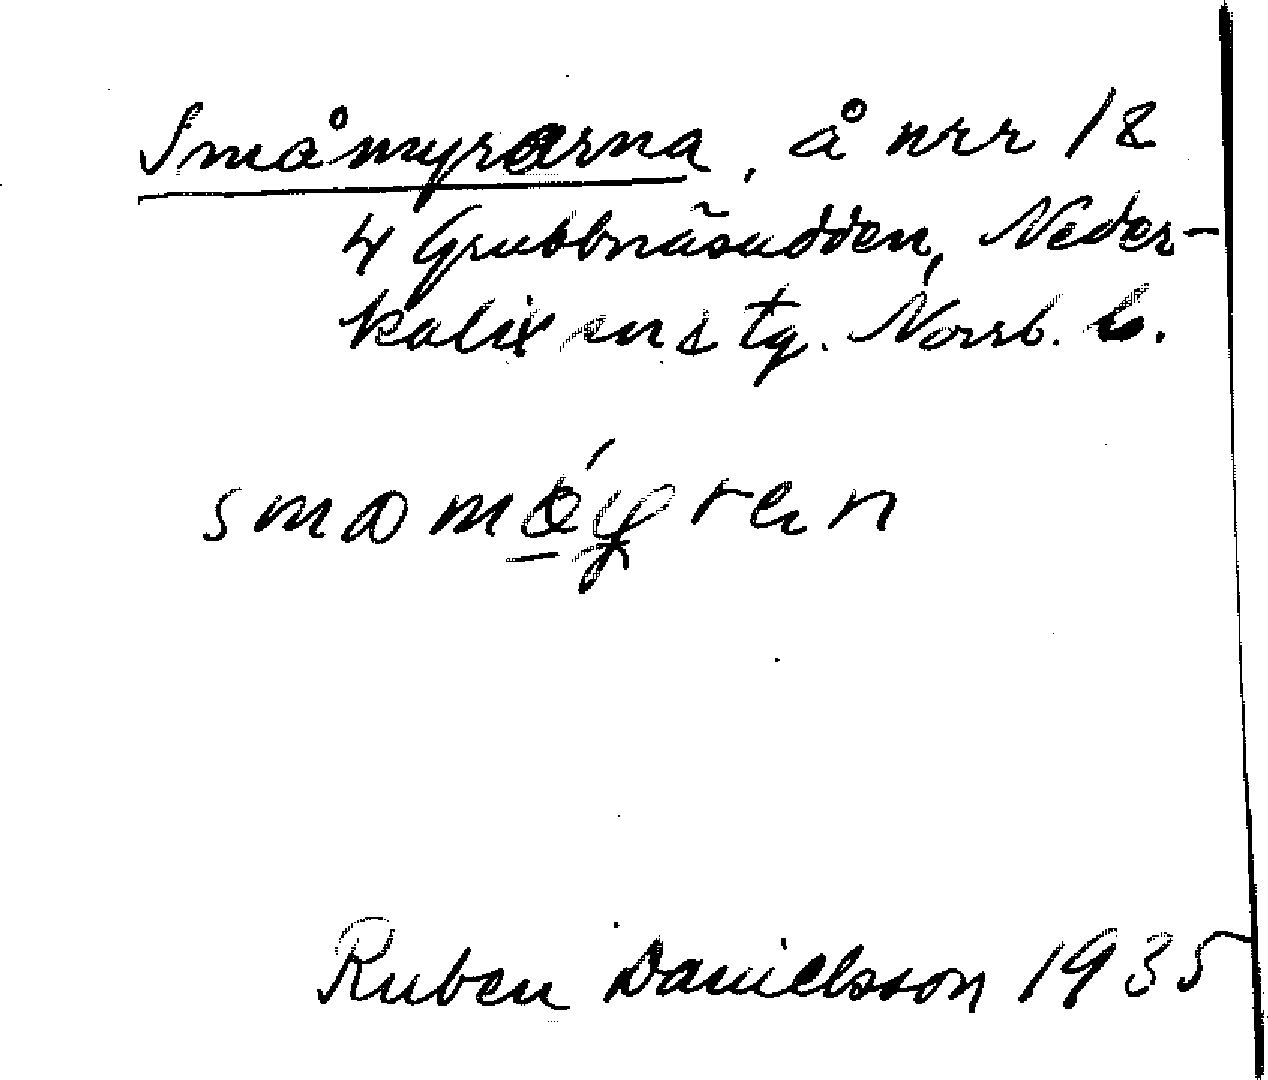 Småmyrarna, å nrr 12
4 Grubbnäsudden, Neder-
kalix sn o tg. Norrb. l.
Ruben Danielsson 1935